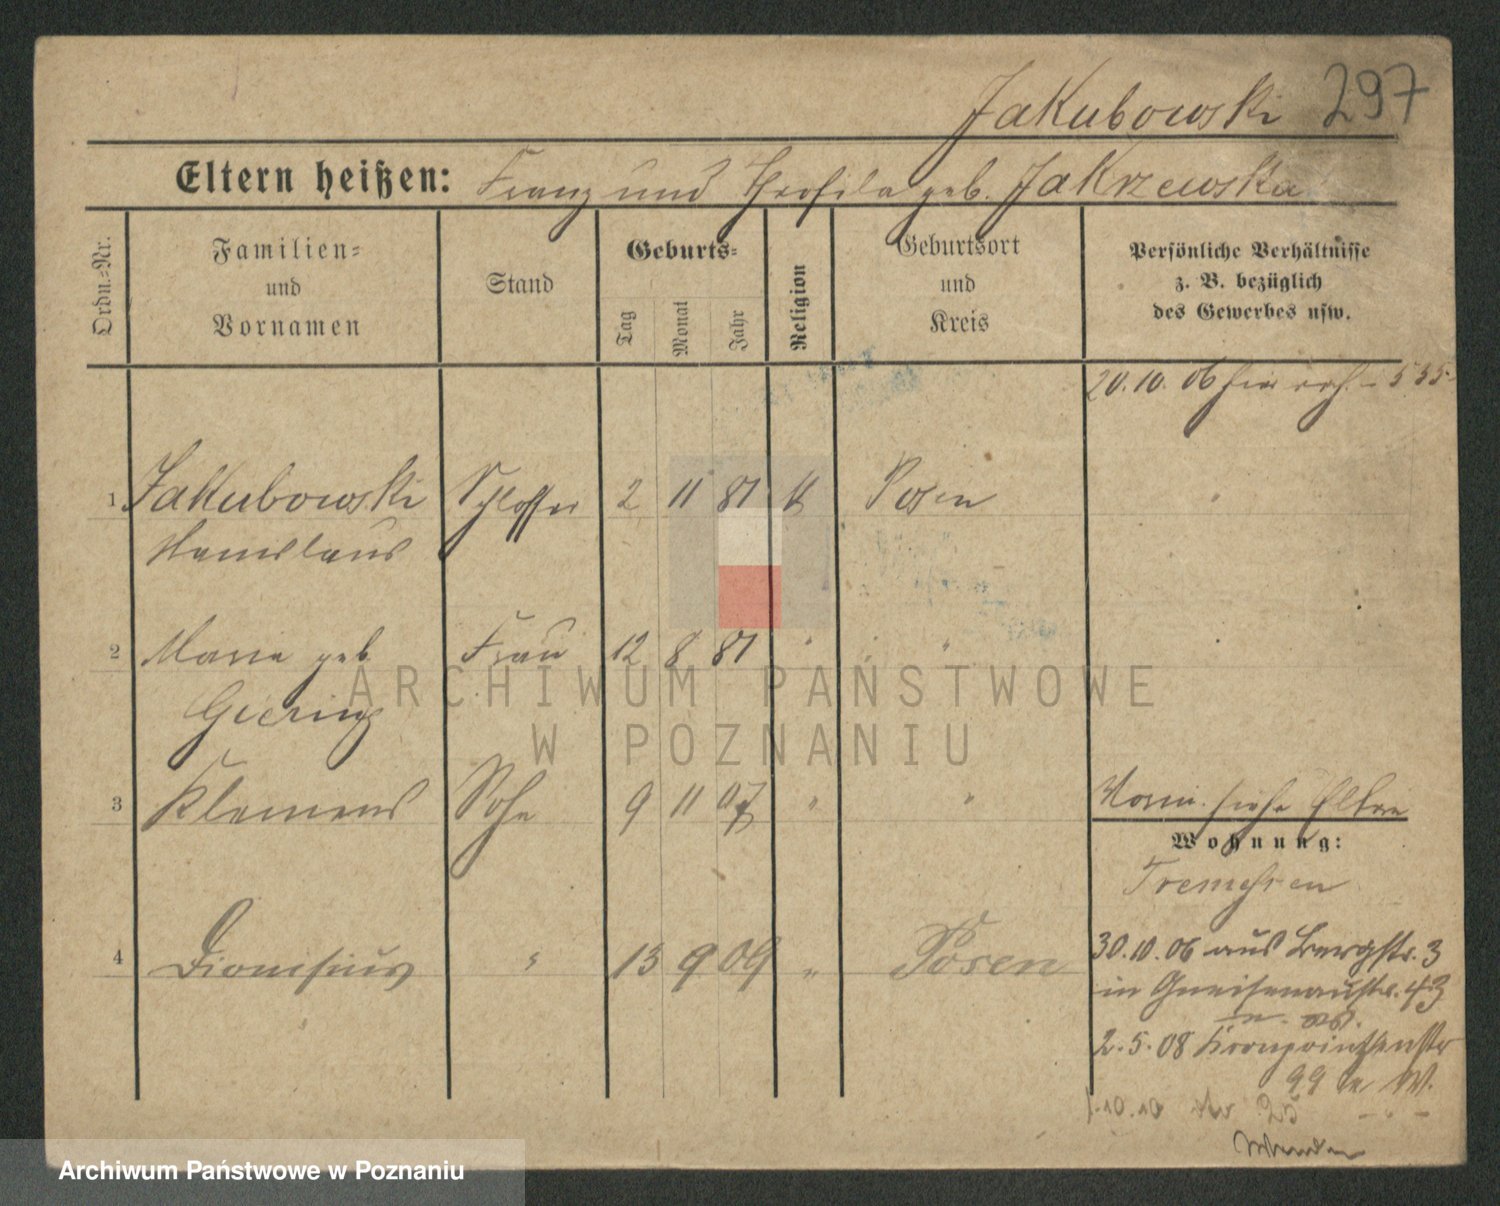 Jakubowski 297
Eltern heißen: Franz und Theofila geb. Jakrzewska
Ordn.-Nr.
Familien-
und
Vornamen
Stand
Geburts-
Tag
Monat
Jahr
Religion
Geburtsort
und
Kreis
Persönliche Verhältnisse
z. B. bezüglich
des Gewerbes usw.
20.10.06 hier
1 Jakubowski Schlosser 2 11 81 k Posen
Stanislaus
2 Maria geb. Frau 12 8 81 " "
Giering
3 Klemens Sohn 9 11 07 " "
Vorm. siehe Eltern
Wohnung:
Tremessen
4 Dionisius " 13 9 09 " Posen
30.10.06 aus Bergstr. 3
in Gneisenaustr. 43
2.5.08 Kronprinzenstr
99 W.
1.10.10 25
ARCHIWUM PAŃSTWOWE
W POZNANIU
Archiwum Państwowe w Poznaniu